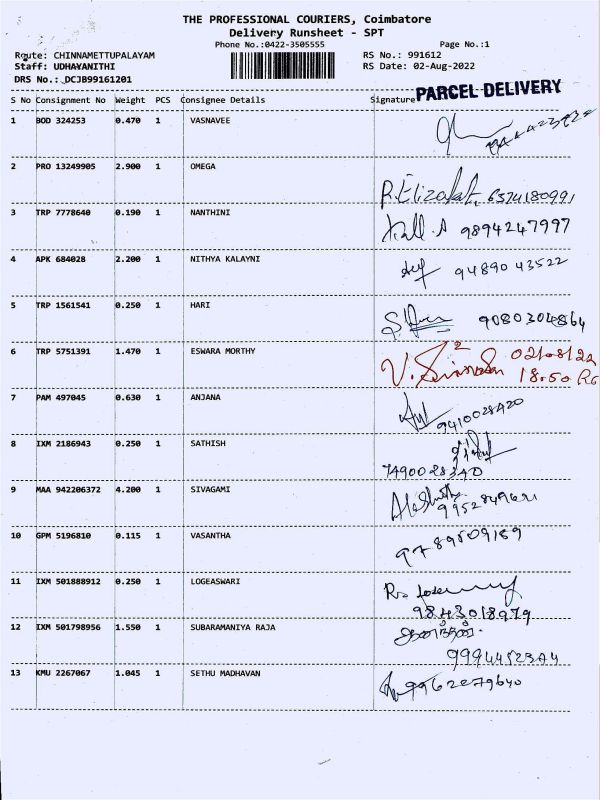 THE PROFESSIONAL COURIERS, Coimbatore
Delivery Runsheet - SPT
Phone No.:0422-3505555 Page No.:1
Route: CHINNAMETTUPALAYAM RS No.: 991612
Staff: UDHAYANITHI RS Date: 02-Aug-2022
DRS No.: DCJB99161201
PARCEL DELIVERY
S No Consignment No Weight PCS Consignee Details Signature
1 BOD 324253 0.470 1 VASNAVEE
2 PRO 13249905 2.900 1 OMEGA
R. 6374180991
3 TRP 7778640 0.190 1 NANTHINI
9894247997
4 APK 684028 2.200 1 NITHYA KALAYNI
94890 43522
5 TRP 1561541 0.250 1 HARI
9080304864
6 TRP 5751391 1.470 1 ESWARA MORTHY
02/08/22
18:50
7 PAM 497045 0.630 1 ANJANA
9410028420
8 IXM 2186943 0.250 1 SATHISH
7490028340
9 MAA 942206372 4.200 1 SIVAGAMI
10 GPM 5196810 0.115 1 VASANTHA
9789509159
11 IXM 501888912 0.250 1 LOGEASWARI
9843018979
12 IXM 501798956 1.550 1 SUBARAMANIYA RAJA
13 KMU 2267067 1.045 1 SETHU MADHAVAN
9962279640